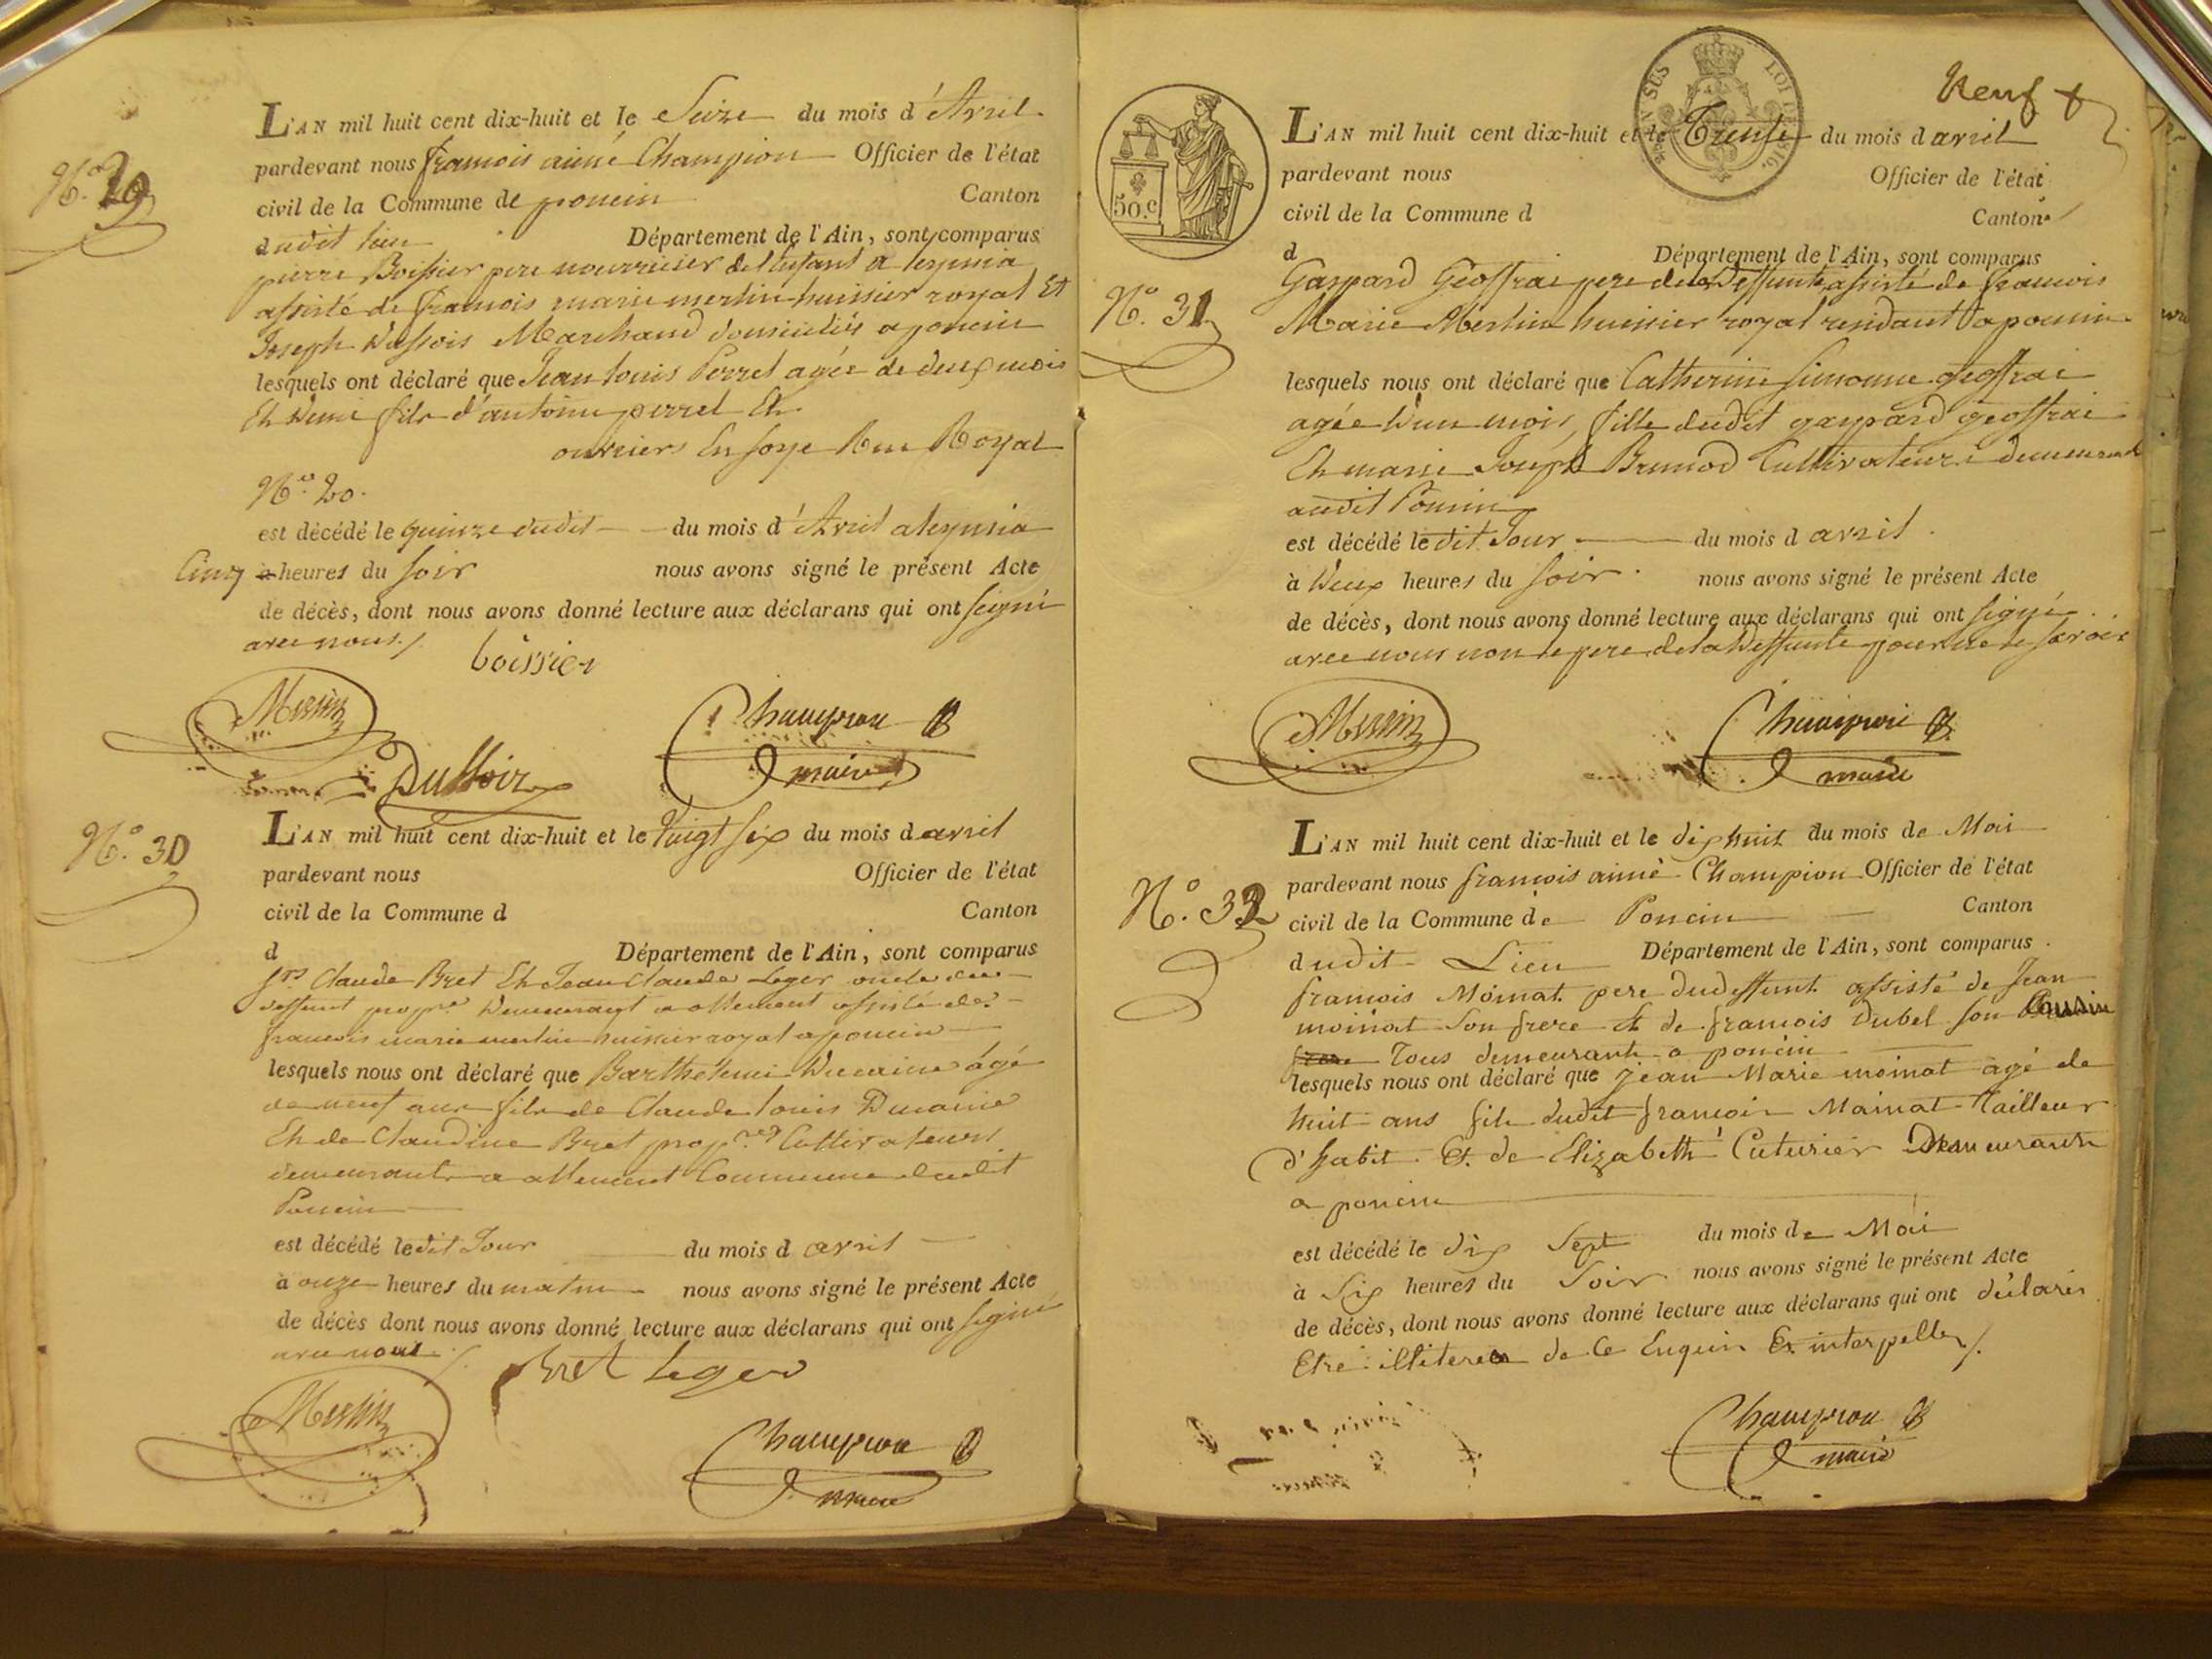 N.º 29
L'AN mil huit cent dix-huit et le Seize du mois d'Avril
pardevant nous francois aimé Champion Officier de l'état
civil de la Commune de poncin Canton
dudit lieu Département de l'Ain, sont comparus
pierre Boissier pere nourricier de l'enfant a leymia
assisté de francois marie merlin huissier royal Et
Joseph Dussois Marchand domiciliés a poncin
lesquels ont déclaré que Jean louis Perret agée de deux mois
Et demi fils d'antoine perret Et
ouvriers En soye Rue Royal
Nº. 20.
est décédé le quinze dudit du mois d'Avril a leymia
Cinq heures du soir nous avons signé le présent Acte
de décès, dont nous avons donné lecture aux déclarans qui ont signé
avec nous /
boissier
Merlin
Champion
maire
Dussoir
N.º 30
L'AN mil huit cent dix-huit et le Vingt six du mois d avril
pardevant nous Officier de l'état
civil de la Commune d Canton
d Département de l'Ain, sont comparus
Srs Claude Bret Et Jean Claude Leger oncle du
deffunt propre demeurant a allement assisté de
francois marie merlin huissier royal a poncin
lesquels nous ont déclaré que Barthélemi Ducaine âgé
de neuf ans fils de Claude louis Ducaine
Et de Claudine Bret propres Cultivateurs
demeurants a allement Commune dudit
Poncin
est décédé le dit Jour du mois d avril
à onze heures du matin nous avons signé le présent Acte
de décès dont nous avons donné lecture aux déclarans qui ont signé
avec nous /
bret leger
Merlin
Champion
maire
Neuf
50.c
L'AN mil huit cent dix-huit et le Trente du mois d avril
pardevant nous Officier de l'état
civil de la Commune d Canton
d Département de l'Ain, sont comparus
N.º 31
Gaspard Geoffrai pere de la deffunte assisté de francois
Marie Merlin huissier royal residant a poncin
lesquels nous ont déclaré que Catherine simonne geoffrai
agée d'un mois, fille dudit gaspard geoffrai
Et marie Joseph Brunod Cultivateurs demeurant
audit Poncin
est décédé le dit Jour du mois d avril
à deux heures du soir nous avons signé le présent Acte
de décès, dont nous avons donné lecture aux déclarans qui ont signé
avec nous non le pere de la deffunte pour ne le savoir
Merlin
Champion
maire
N.º 32
L'AN mil huit cent dix-huit et le dix huit du mois de Mai
pardevant nous francois aimé Champion Officier de l'état
civil de la Commune de Poncin Canton
dudit Lieu Département de l'Ain, sont comparus
francois Moinat pere du deffunt assisté de Jean
moinat son frere Et de francois Dubel son Cousin
Tous demeurants a poncin
lesquels nous ont déclaré que jean Marie moinat agé de
huit ans fils dudit francois Mainat Tailleur
d'habit Et de Elizabeth Cuturier Demeurants
a poncin
est décédé le dix Sept du mois de Mai
à Six heures du Soir nous avons signé le présent Acte
de décès, dont nous avons donné lecture aux déclarans qui ont déclarés
Etre illiteres de Ce Enquis Et interpellés /.
Champion
maire